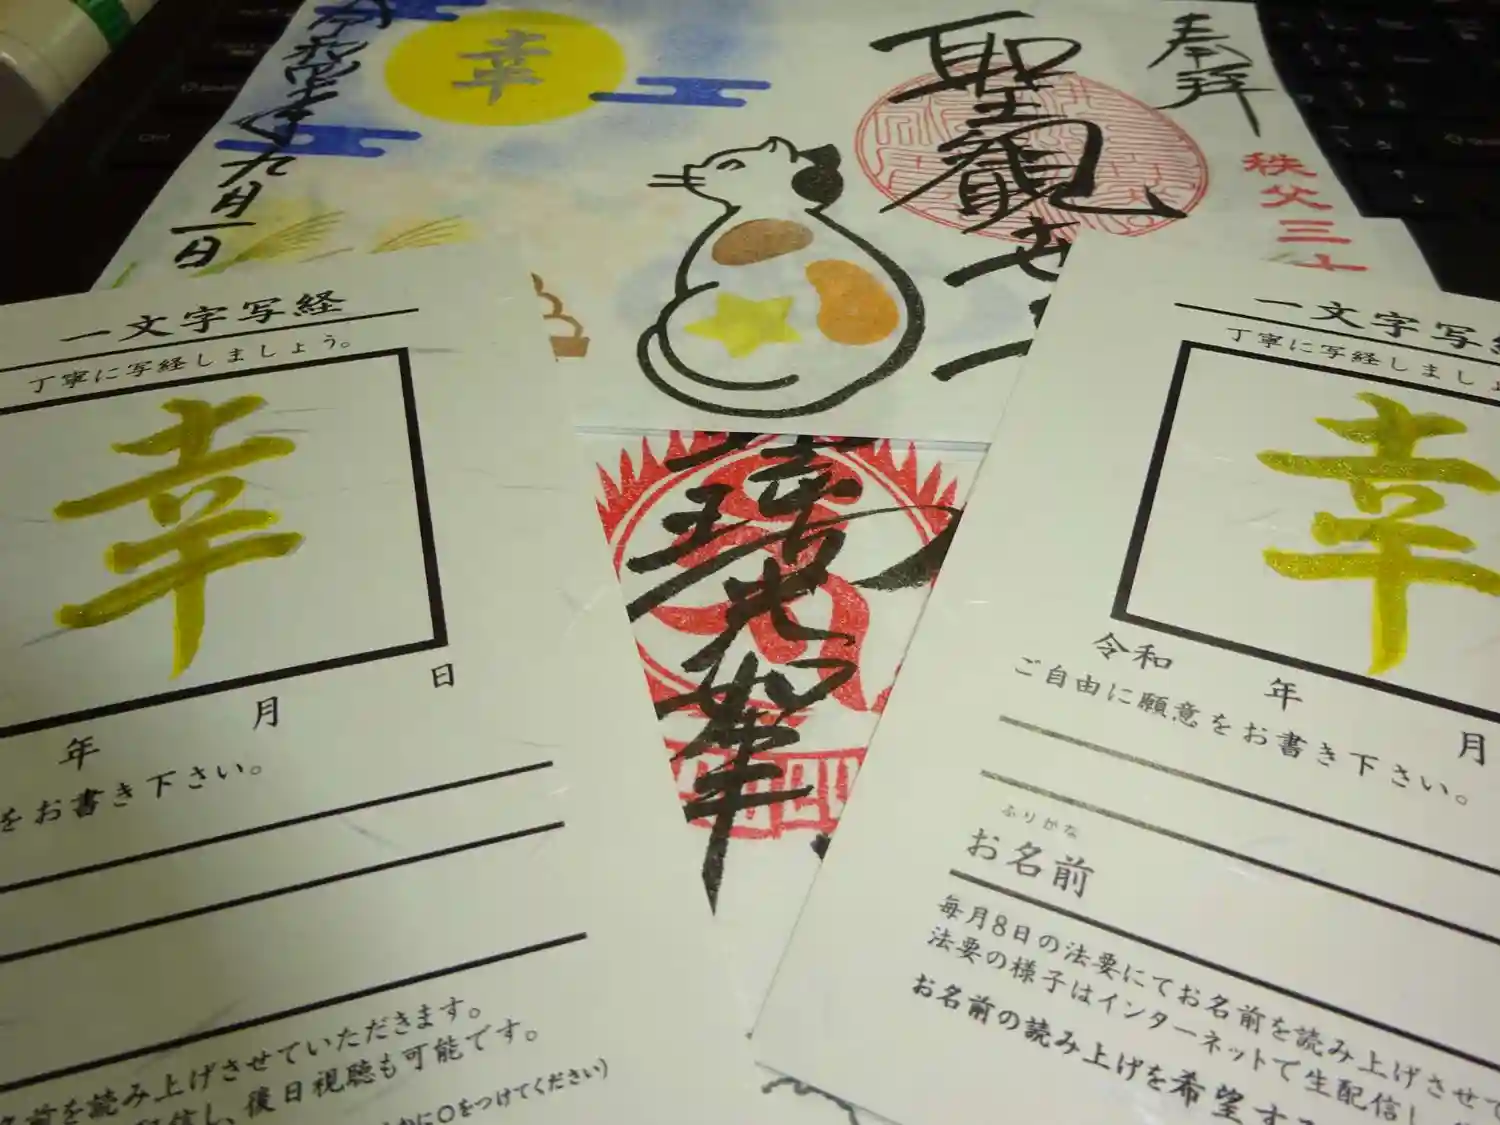 奉拝
秩父三十
聖観世
幸
令和四年九月一日
瑠光如来
一文字写経
丁寧に写経しましょう。
幸
年 月 日
をお書き下さい。
名前を読み上げさせていただきます。
配信し、後日視聴も可能です。
かに〇をつけてください)
一文字写
丁寧に写経しましょ
幸
令和 年 月
ご自由に願意をお書き下さい。
ふりがな
お名前
毎月8日の法要にてお名前を読み上げさせて
法要の様子はインターネットで生配信し
お名前の読み上げを希望する